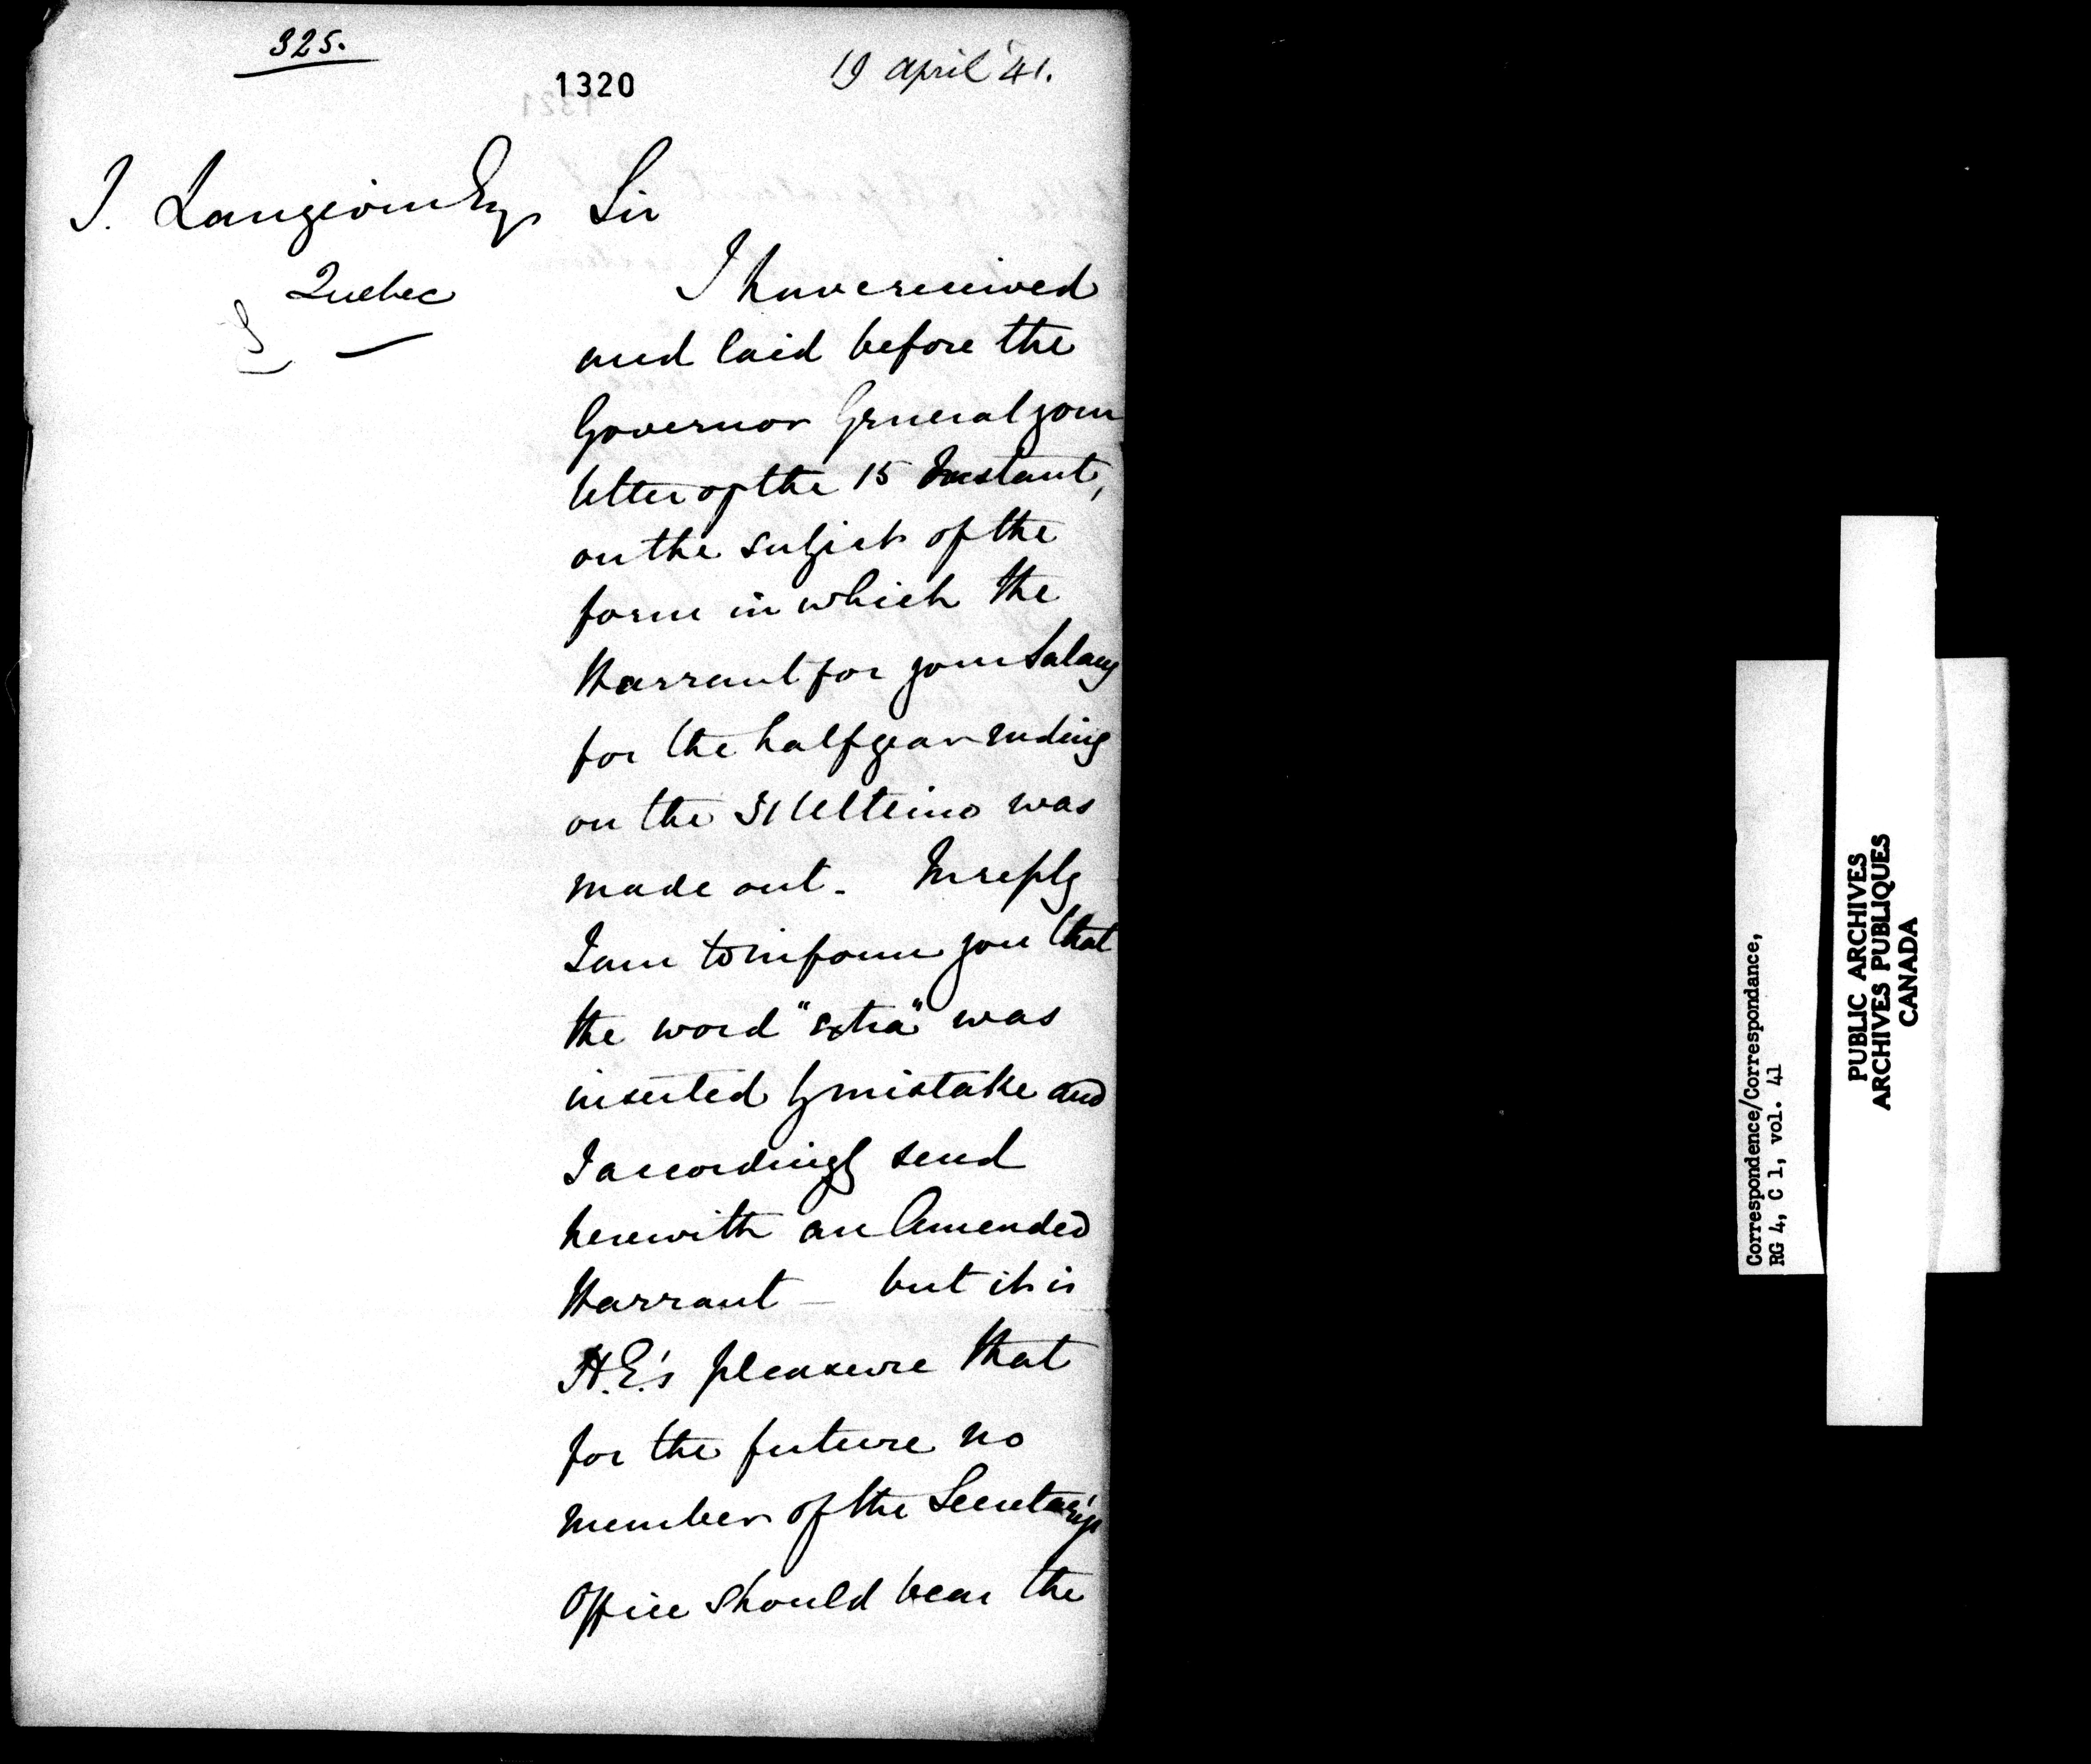 325.
1320
19 April '41.
J. Langevin Esq
Quebec
Sir
I have received
and laid before the
Governor General your
letter of the 15 Instant,
on the subject of the
form in which the
Warrant for your Salary
for the half year ending
on the 31 Ultimo was
made out. In reply
I am to inform you that
the word "extra" was
inserted by mistake and
I accordingly send
herewith an Amended
Warrant — but it is
H.E.'s pleasure that
for the future no
member of the Secretary's
Office should bear the
Correspondence/Correspondance,
RG 4, C 1, vol. 41
PUBLIC ARCHIVES
ARCHIVES PUBLIQUES
CANADA